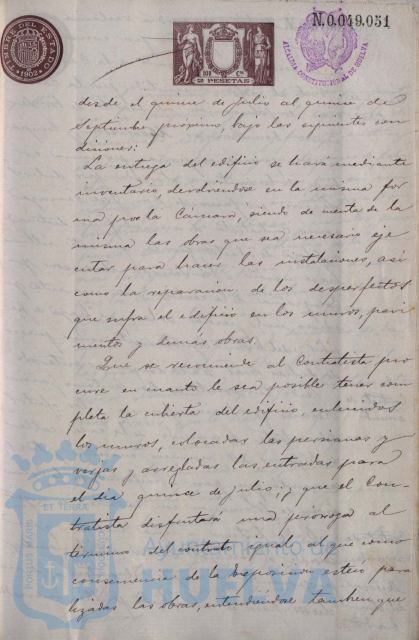 TIMBRE DEL ESTADO
1902
100 Cs
2 PESETAS
N.0.049.051
ALCALDIA CONSTITUCIONAL DE HUELVA
desde el quince de Julio al quince de
Septiembre próximo, bajo las siguientes con
diciones:
La entrega del edificio se hará mediante
inventario, devolviendose en la misma for
ma por la Cámara, siendo de cuenta de la
misma las obras que sea necesario eje
cutar para hacer las instalaciones, asi
como la reparacion de los desperfectos
que sufra el edificio en los muros, pavi
mentos y demás obras.
Que se recomiende al Contratista pro
cure en cuanto le sea posible tener com
pleta la cubierta del edificio, enlucidos
los muros, colocadas las persianas y
verjas y arregladas las entradas para
el dia quince de julio; y que el Con-
tratista disfrutará una prorroga al
término del contrato igual al que como
consecuencia de la disposicion esten para
lizadas las obras, entendiéndose tambien que
PORTUS MARIS
ET TERRAE
Ayuntamiento de
HUELVA